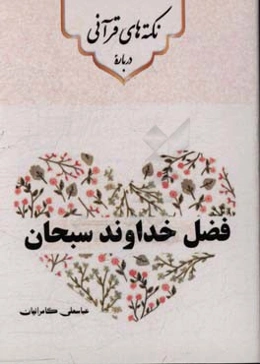 نکته‌های قرآنی
دربارهٔ
فضل خداوند سبحان
عباسعلی کامرانیان